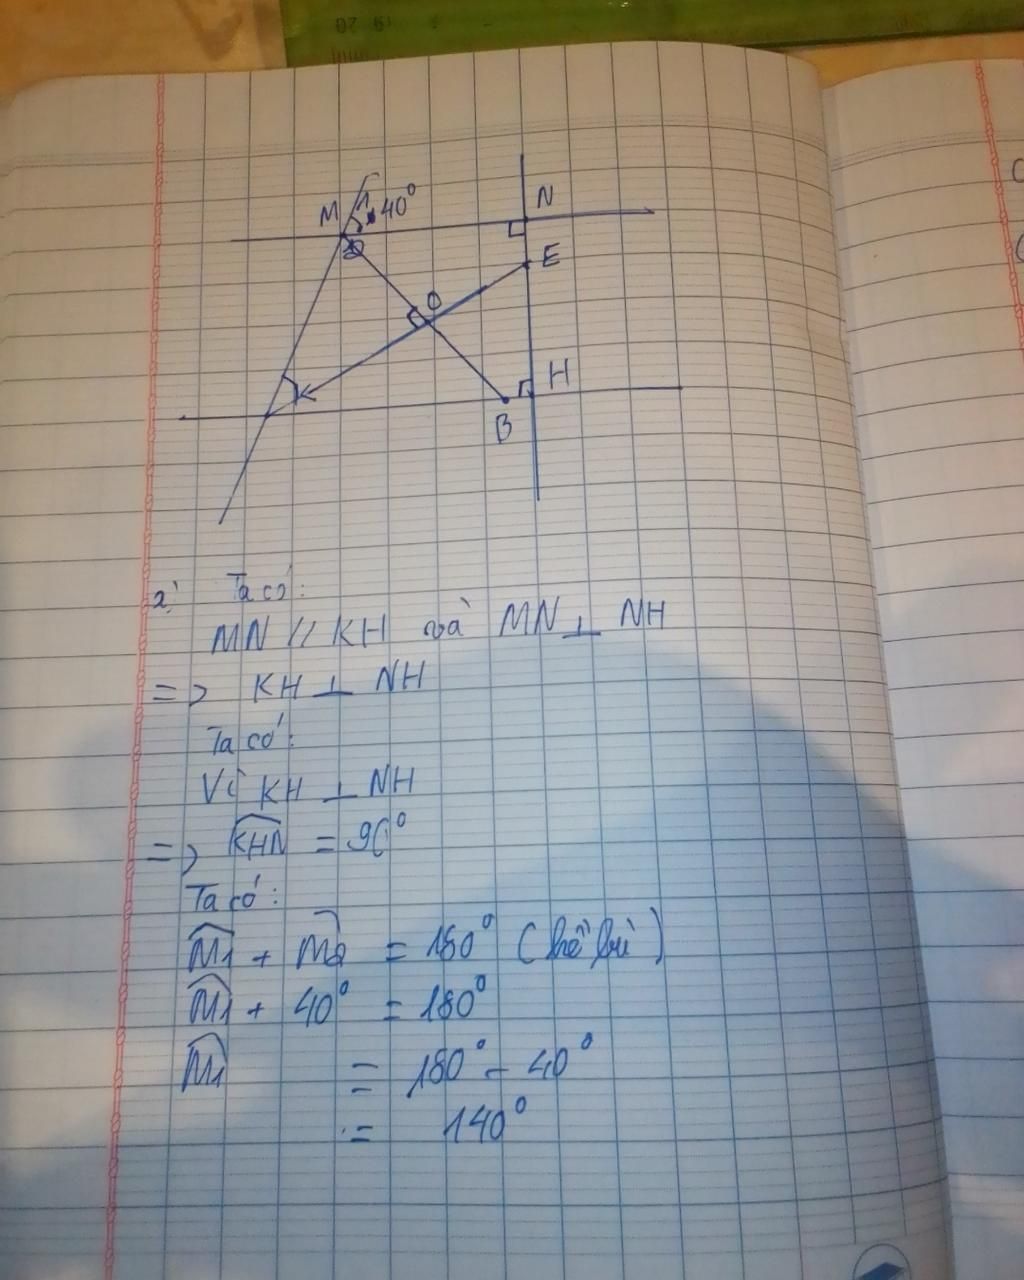 19 20
M 1 40°
N
E
O
H
B
a) Ta có:
MN // KH và MN ⊥ NH
=> KH ⊥ NH
Ta có:
Vì KH ⊥ NH
=> KHN = 90°
Ta có:
M1 + M2 = 180° (kề bù)
M1 + 40° = 180°
M1 = 180° - 40°
= 140°